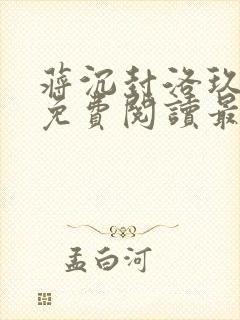 蔣沉封洛玖
免費閱讀最
孟白河